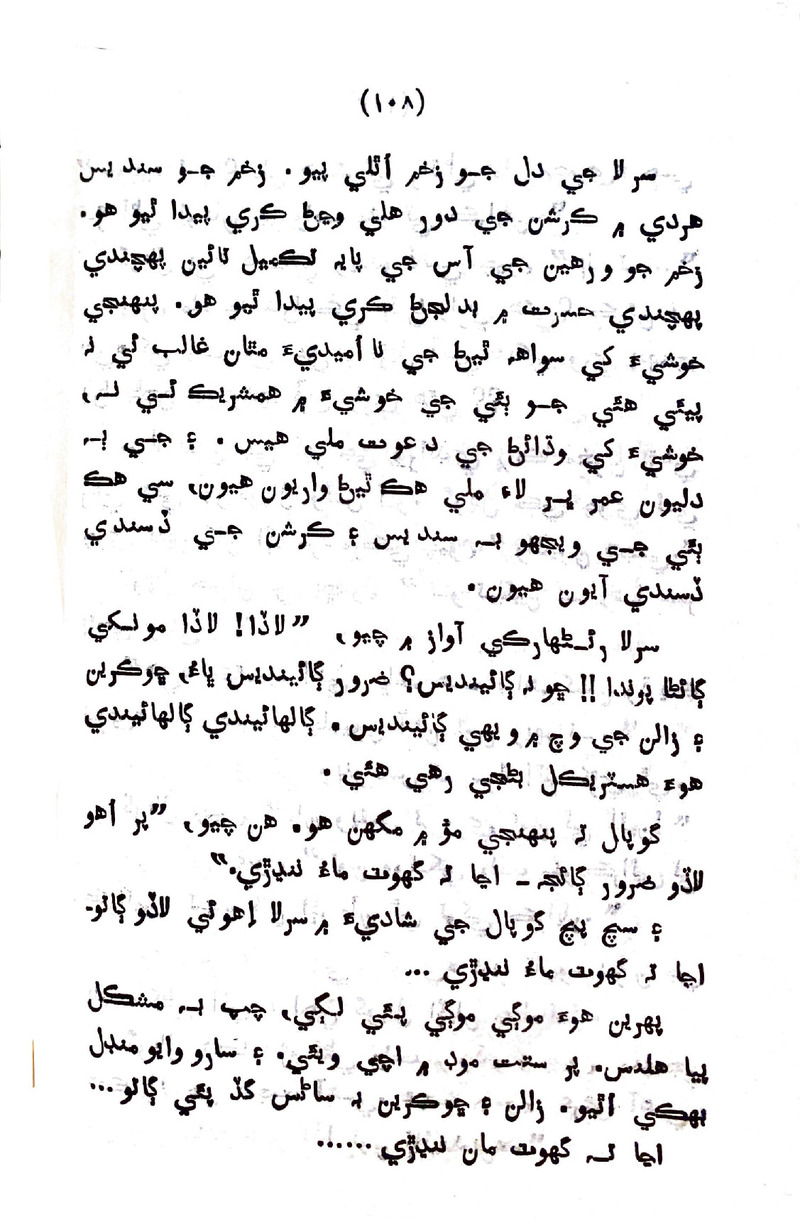 (١٠٨)
سرلا جي دل جو زخم اُٿلي پيو. زخم جو سندس
هردي ۾ ڪرشن جي دور هلي وڃڻ ڪري پيدا ٿيو هو.
زخم جو ورهين جي آس جي پايہ تڪميل تائين پهچندي
پهچندي حسرت ۾ بدلجڻ ڪري پيدا ٿيو هو. پنهنجي
خوشيءَ کي سواهہ ٿيڻ جي نا اُميديءَ مٿان غالب ٿي نہ
پيئي هئي جو ٻئي جي خوشيءَ ۾ همشريڪ ٿي نہ،
خوشيءَ کي وڌائڻ جي دعوت ملي هيس. ۽ جي بہ
دليون عمر ڀر لاءِ ملي هڪ ٿيڻ واريون هيون، سي هڪ
ٻئي جي ويجهو بہ سندس ۽ ڪرشن جي ڏسندي
ڏسندي آيون هيون.
سرلا رئڻهارڪي آواز ۾ چيو، ”لاڏا! لاڏا مونکي
ڳائڻا پوندا !! ڇو نہ ڳائينديس؟ ضرور ڳائينديس ڀاءُ، ڇوڪرين
۽ زالن جي وچ ۾ ويهي ڳائينديس. ڳالهائيندي ڳالهائيندي
هوءَ هسٽريڪل بڻجي رهي هئي.
گوپال تہ پنهنجي مؤ ۾ مگهن هو. هن چيو، ”پر اُهو
لاڏو ضرور ڳائجہ ـ اڃا تہ گهوٽ ماءُ ننڍڙي.“
۽ سچ پچ گوپال جي شاديءَ ۾ سرلا اِهوئي لاڏو ڳاتو-
اڃا تہ گهوٽ ماءُ ننڍڙي ...
پهرين هوءَ موڳي موڳي پئي لڳي، چپ بہ مشڪل
پيا هلندس. پر سٽت موڊ ۾ اچي ويئي. ۽ سارو وايو منڊل
ٻهڪي اُٿيو. زالن ۽ ڇوڪرين بہ ساڻس گڏ پئي ڳاتو...
اڃا تہ گهوٽ مان ننڍڙي ......